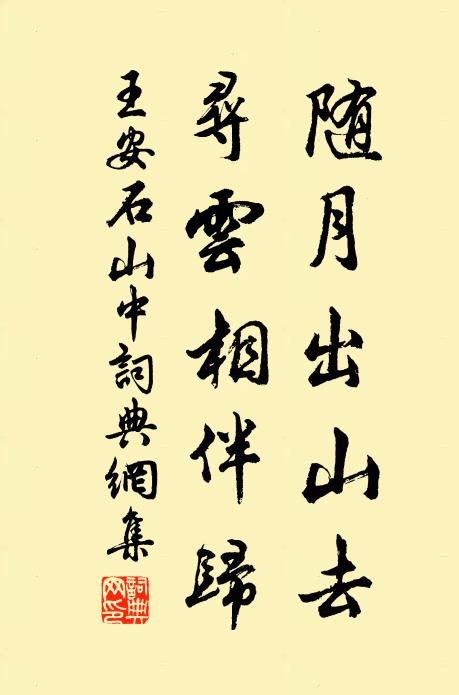 随月出山去
尋雲相伴歸
王安石山中詞典網集
詞典網印